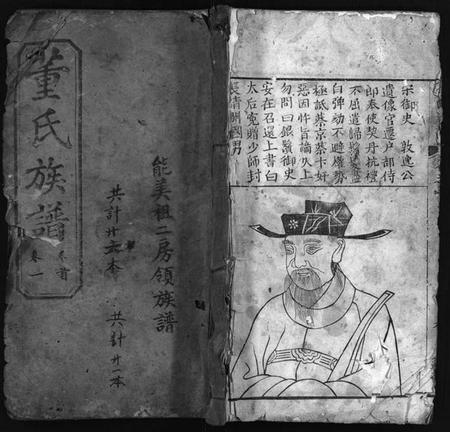 董氏族譜
卷首
卷一
能美祖二房領族譜
共計廿本
共計廿一本
宋御史 敦逸公
遺像官遷戶部侍
郎奉使契丹抗禮
不屈遣歸
白彈劾不避權勢
極詆蔡京蔡卞奸
惡因忤旨謫久上
勿問曰銀鬚御史
安在召還上書白
太后寃贈少師封
長清開國男